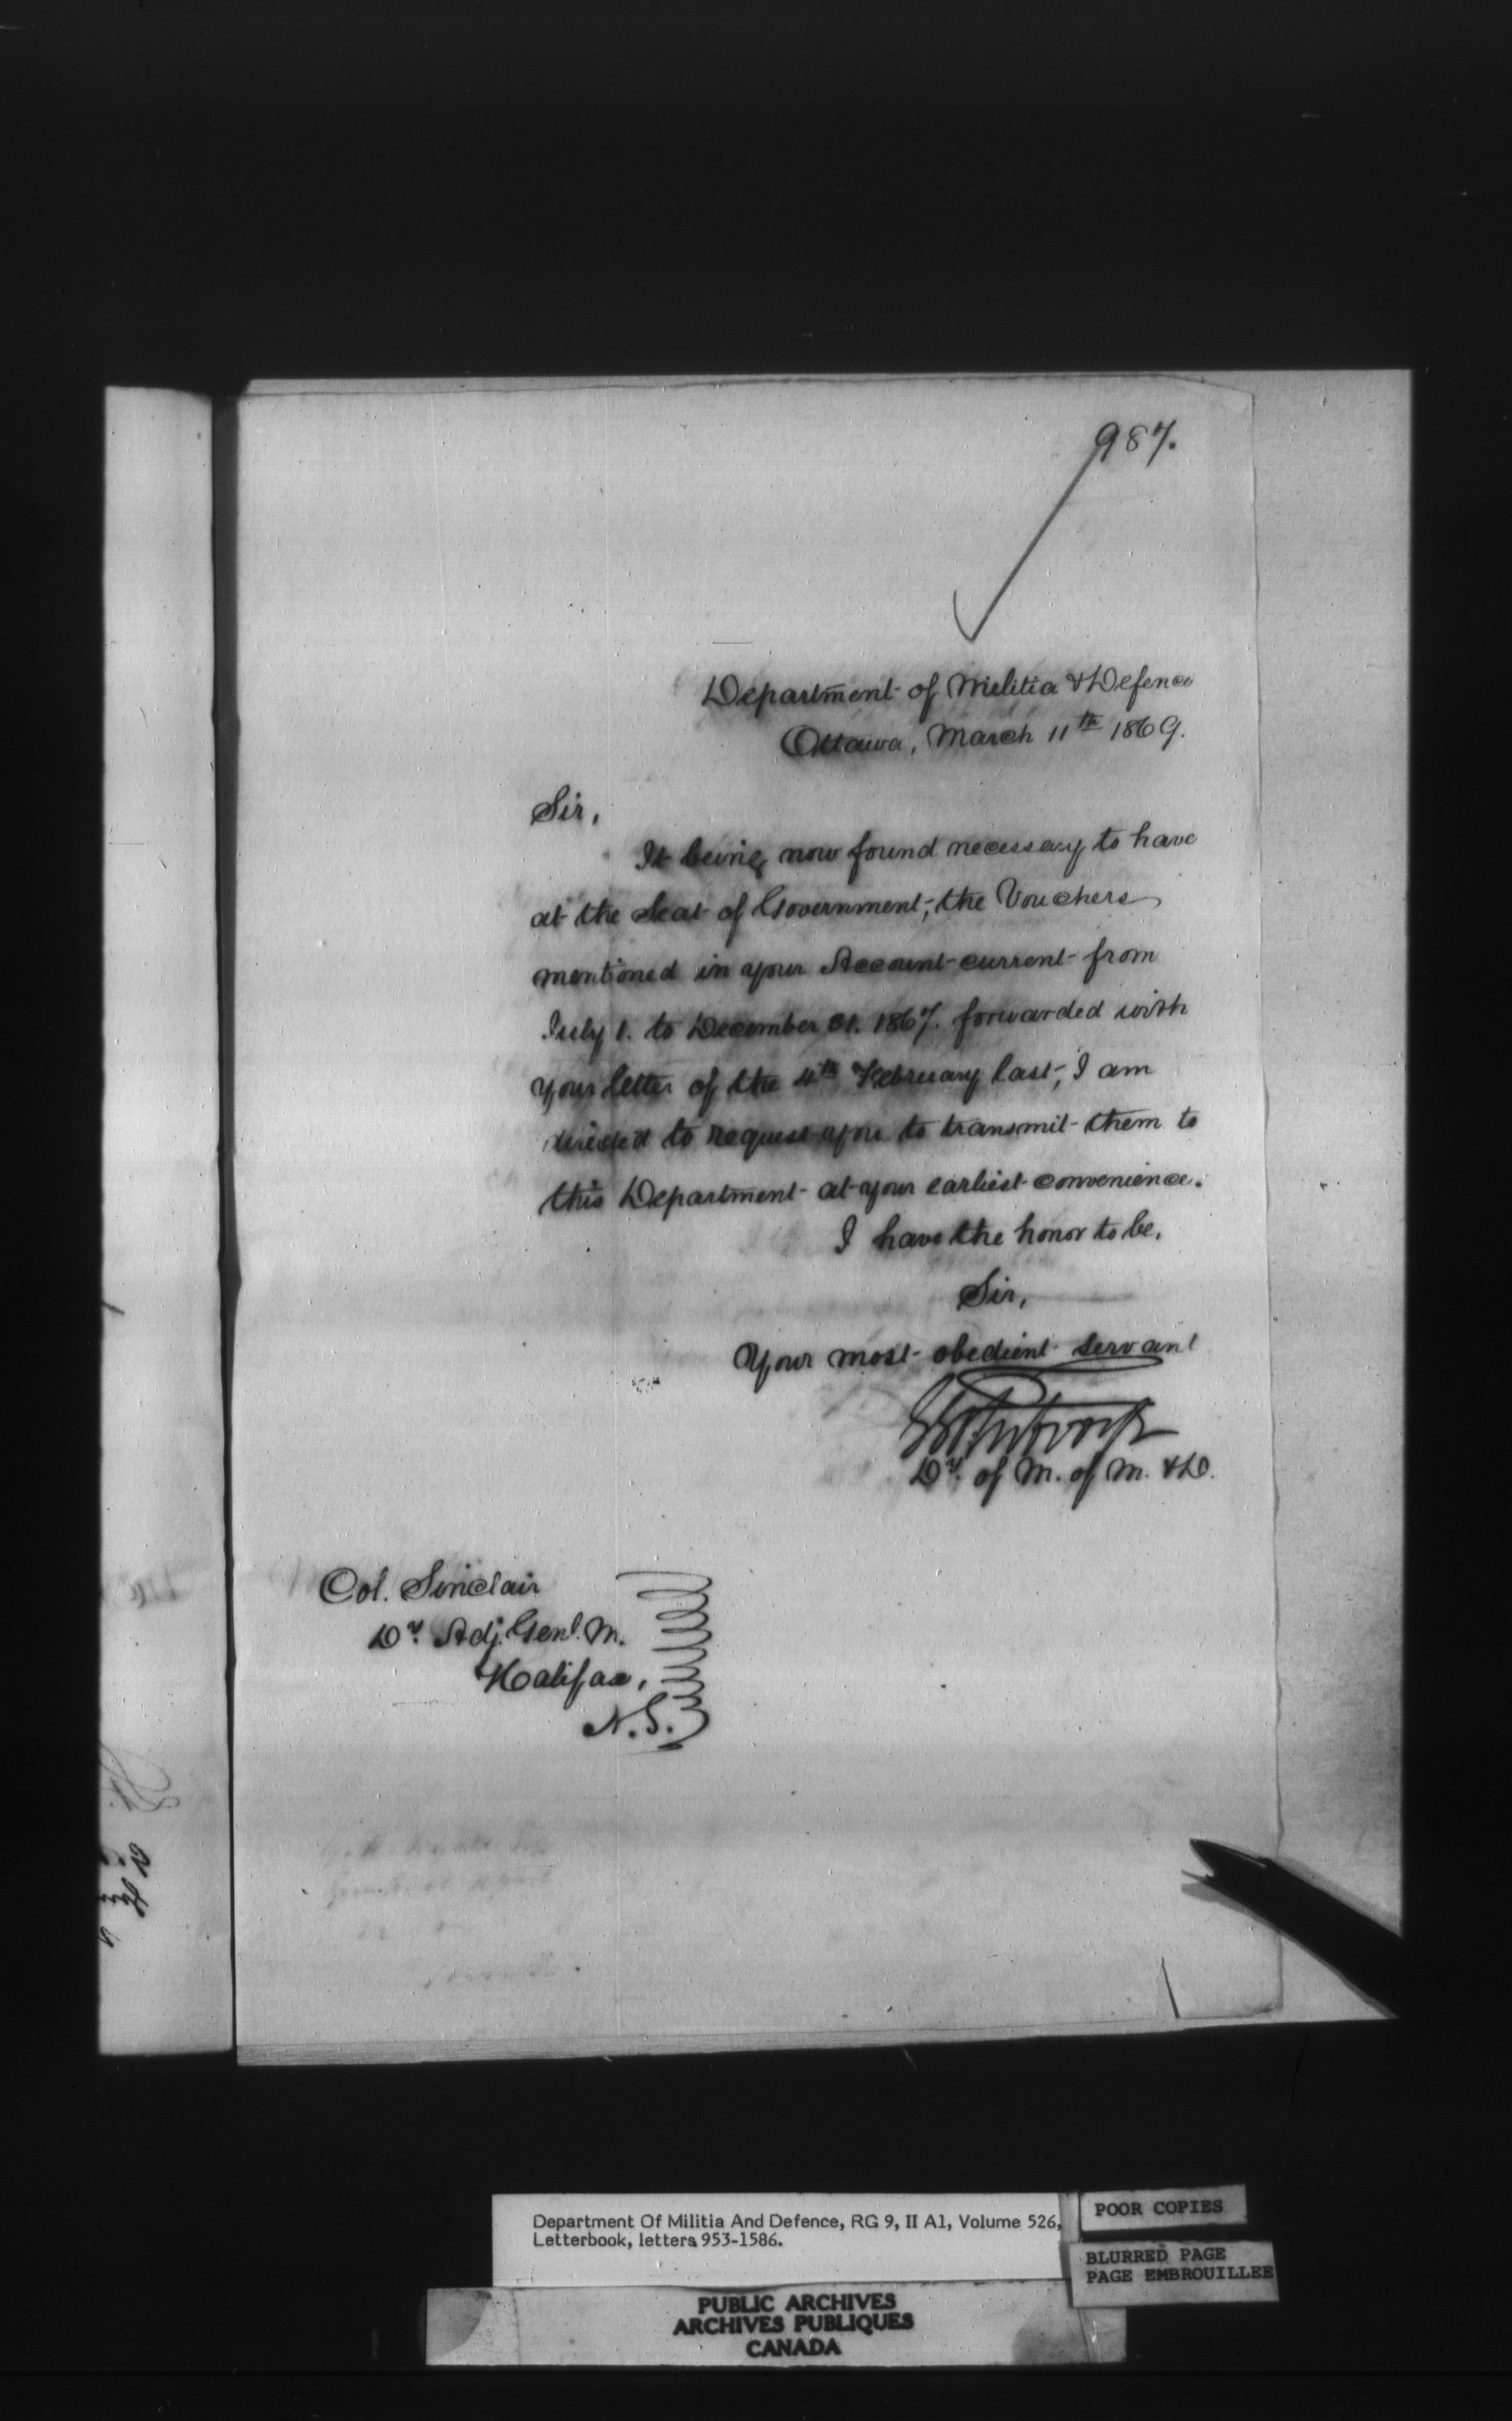 987.
Department of Militia & Defence
Ottawa, March 11th 1869.
Sir,
It being now found necessary to have
at the Seat of Government, the Vouchers
mentioned in your Account current from
July 1. to December 31. 1867. forwarded with
your letter of the 4th February last, I am
directed to request you to transmit them to
this Department at your earliest convenience.
I have the honor to be,
Sir,
Your most obedient servant
Dy. of M. of M. & D.
Col. Sinclair
Dy. Adj. Genl. M.
Halifax,
N.S.
Department Of Militia And Defence, RG 9, II A1, Volume 526,
Letterbook, letters 953-1586.
POOR COPIES
BLURRED PAGE
PAGE EMBROUILLEE
PUBLIC ARCHIVES
ARCHIVES PUBLIQUES
CANADA